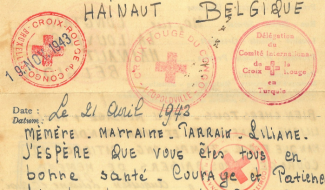 HAINAUT BELGIQUE
CROIX-ROUGE du CONGO
19 NOV 1943
CROIX ROUGE DU CONGO
Délégation
du
Comité International
de la
Croix Rouge
en
Turquie
Date : Le 21 Avril 1943
Datum :
MÉMÈRE - MARRAINE - PARRAIN - LILIANE.
J'ESPÈRE QUE VOUS ÊTES TOUS EN
BONNE SANTÉ - COURAGE ET PATIENC